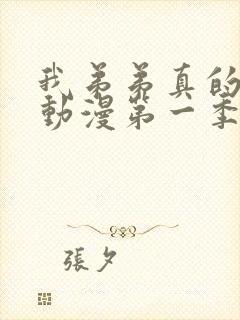 我弟弟真的
動漫第一季
張夕